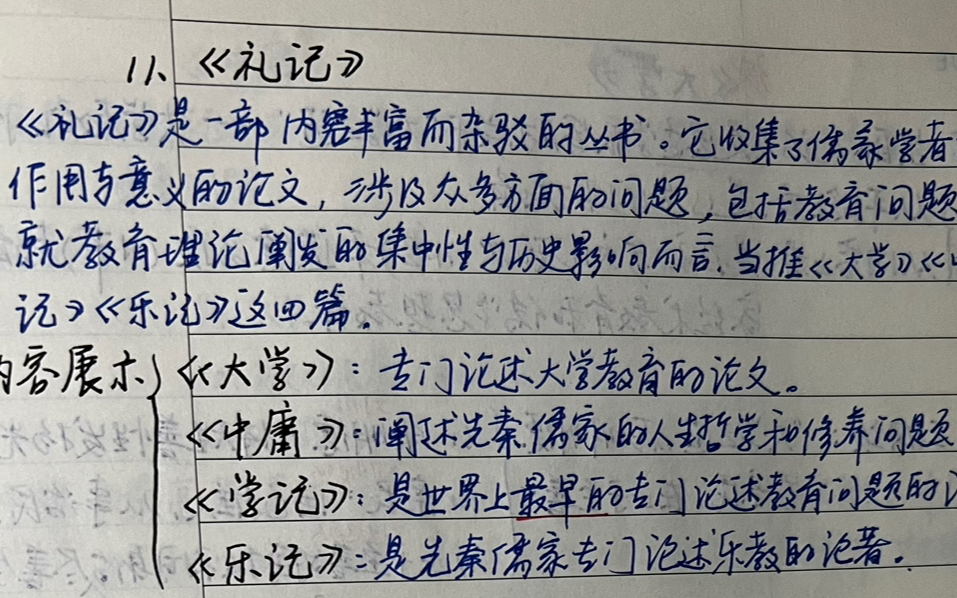 11、《礼记》
《礼记》是一部内容丰富而杂驳的丛书。它收集了儒家学者
作用与意义的论文，涉及众多方面的问题，包括教育问题
就教育理论阐发的集中性与历史影响而言，当推《大学》《
记》《乐记》这四篇。
内容展示
《大学》：专门论述大学教育的论文。
《中庸》：阐述先秦儒家的人生哲学和修养问题
《学记》：是世界上最早的专门论述教育问题的
《乐记》：是先秦儒家专门论述乐教的论著。